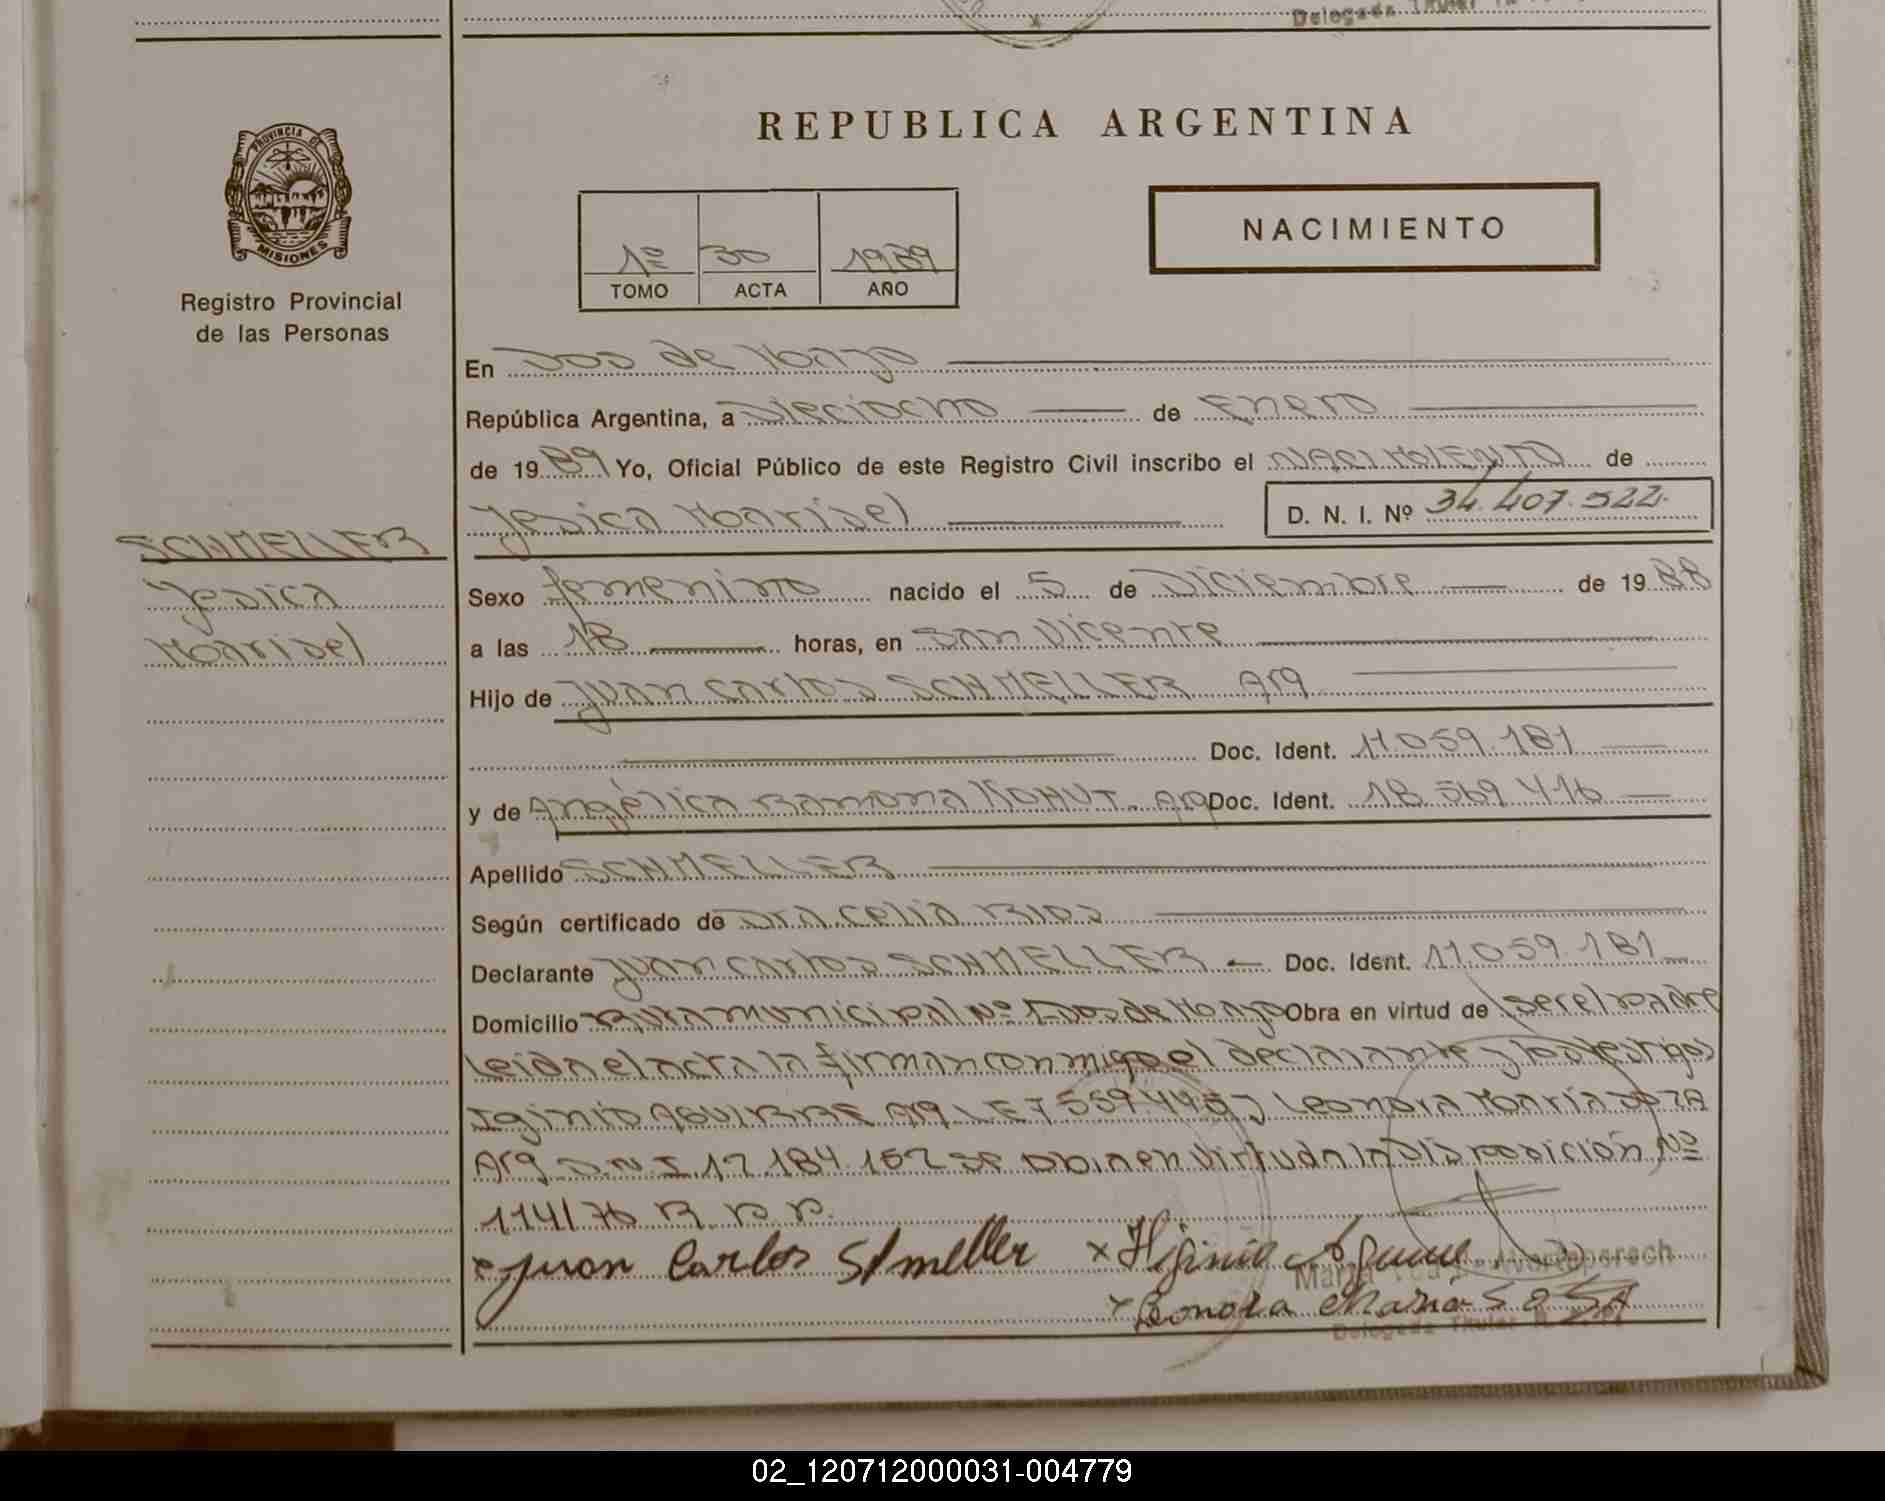 Delegada Titular
PROVINCIA DE
MISIONES
Registro Provincial
de las Personas
REPUBLICA ARGENTINA
1º 30 1989
TOMO ACTA AÑO
NACIMIENTO
En Dos de Mayo
República Argentina, a Dieciocho de Enero
de 1989 Yo, Oficial Público de este Registro Civil inscribo el NACIMIENTO de
Jesica Marisel D. N. I. Nº 34.407.522
SCHMELLER
Jesica
Marisel
Sexo femenino nacido el 5 de Diciembre de 1988
a las 18 horas, en San Vicente
Hijo de Juan Carlos SCHMELLER Arg
Doc. Ident. 11.059.181
y de Angélica Ramona KOHUT. Arg Doc. Ident. 18.569.416
Apellido SCHMELLER
Según certificado de Dra Celia Rios
Declarante Juan Carlos SCHMELLER Doc. Ident. 11.059.181
Domicilio Ruta municipal Nº 1 Dos de Mayo Obra en virtud de ser el padre
Leida el acta la firman conmigo el declarante y los testigos
Iginio AGUIRRE Arg L E 7 559 448 y Leonora María SOSA
Arg D N I 17.184.152 se obia en virtud a la Disposición Nº
114/76 R. P. P.
Juan Carlos Shmeller x Higinio Aguirre
x Leonora Maria SOSA
Delegada Titular
02_120712000031-004779